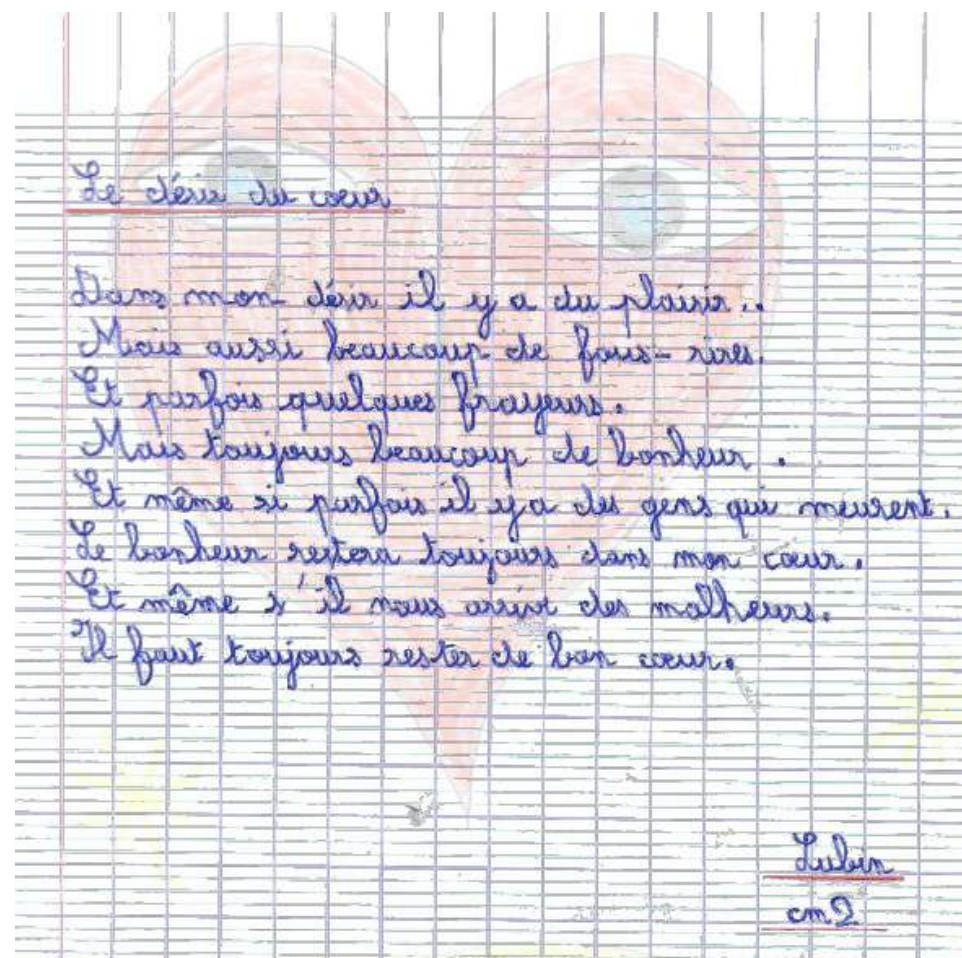 Le désir du coeur
Dans mon désir il y a du plaisir..
Mais aussi beaucoup de fous-rires.
Et parfois quelques frayeurs.
Mais toujours beaucoup de bonheur.
Et même si parfois il y a des gens qui meurent.
Le bonheur restera toujours dans mon cœur.
Et même s'il nous arrive des malheurs.
Il faut toujours rester de bon cœur.
Lubin
cm2